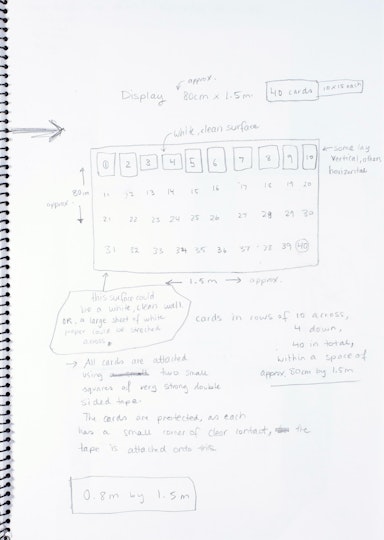 approx.
Display 80cm x 1.5m 40 cards 10 x 15 each
white, clean surface
1 2 3 4 5 6 7 8 9 10
some lay
vertical, others
horizontal
80cm
approx.
11 12 13 14 15 16 17 18 19 20
21 22 23 24 25 26 27 28 29 30
31 32 33 34 35 36 37 38 39 40
1.5m approx.
this surface could
be a white, clean wall
OR a large sheet of white
paper could be
across.
cards in rows of 10 across,
4 down,
40 in total,
within a space of
approx. 80cm by 1.5m
→ All cards are attached
using two small
squares of very strong double
sided tape.
The cards are protected, as each
has a small corner of clear contact, the
tape is attached onto this
0.8m by 1.5m